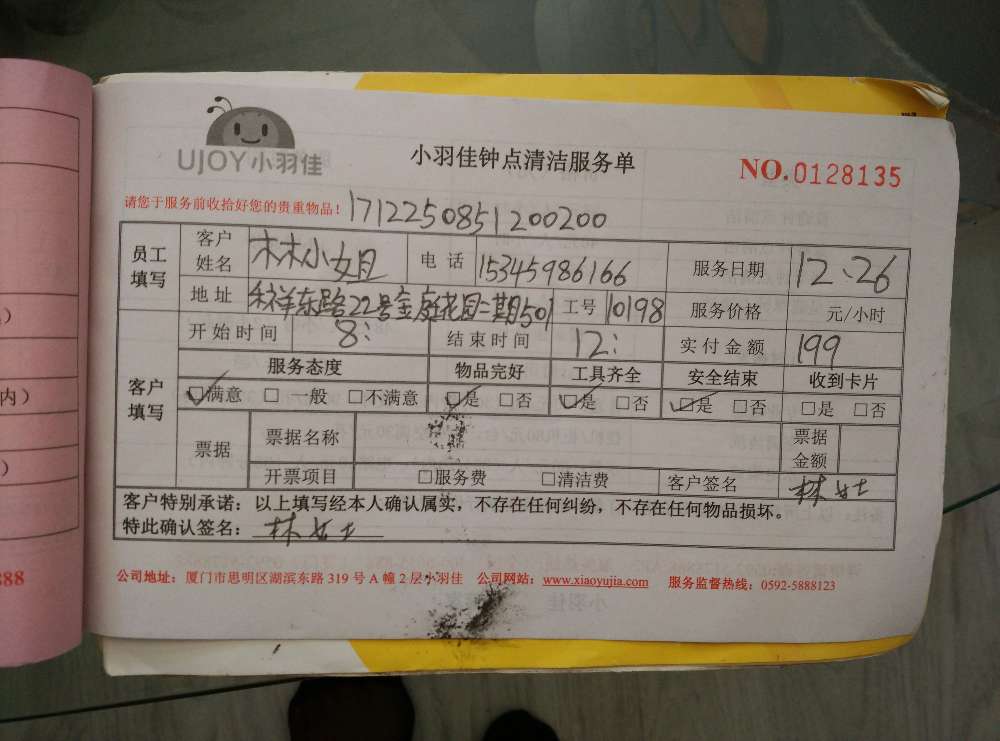 UJOY小羽佳
小羽佳钟点清洁服务单
NO.0128135
请您于服务前收拾好您的贵重物品！ 1712250851200200
员工填写 客户姓名 林小姐 电话 15345986166 服务日期 12、26
地址 禾祥东路22号金庭花园二期501 工号 10198 服务价格 元/小时
客户填写 开始时间 8： 结束时间 12： 实付金额 199
服务态度 物品完好 工具齐全 安全结束 收到卡片
☑满意 □一般 □不满意 ☑是 □否 ☑是 □否 ☑是 □否 □是 □否
票据 票据名称 票据金额
开票项目 □服务费 □清洁费 客户签名 林女士
客户特别承诺：以上填写经本人确认属实，不存在任何纠纷，不存在任何物品损坏。
特此确认签名：林女士
公司地址：厦门市思明区湖滨东路 319 号 A 幢 2 层小羽佳 公司网站：www.xiaoyujia.com 服务监督热线：0592-5888123
内）
888